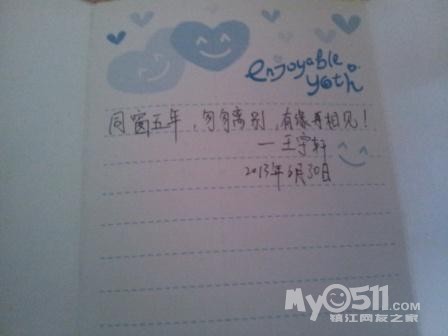 enjoyable
yoth
同窗五年，匆匆离别，有缘再相见！
—王宇轩
2013年6月30日
My0511.com
镇江网友之家